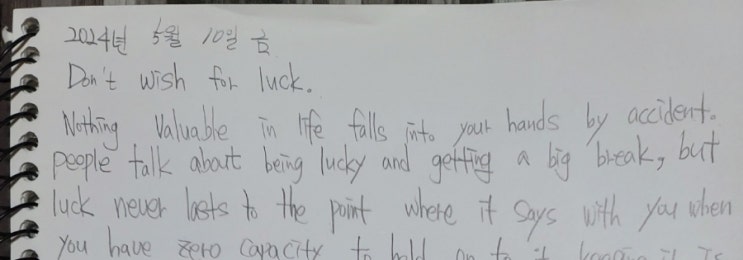 2024년 5월 10일 금
Don't wish for luck.
Nothing Valuable in life falls into your hands by accident.
people talk about being lucky and getting a big break, but
luck never lasts to the point where it says with you when
you have zero capacity to hold on to it